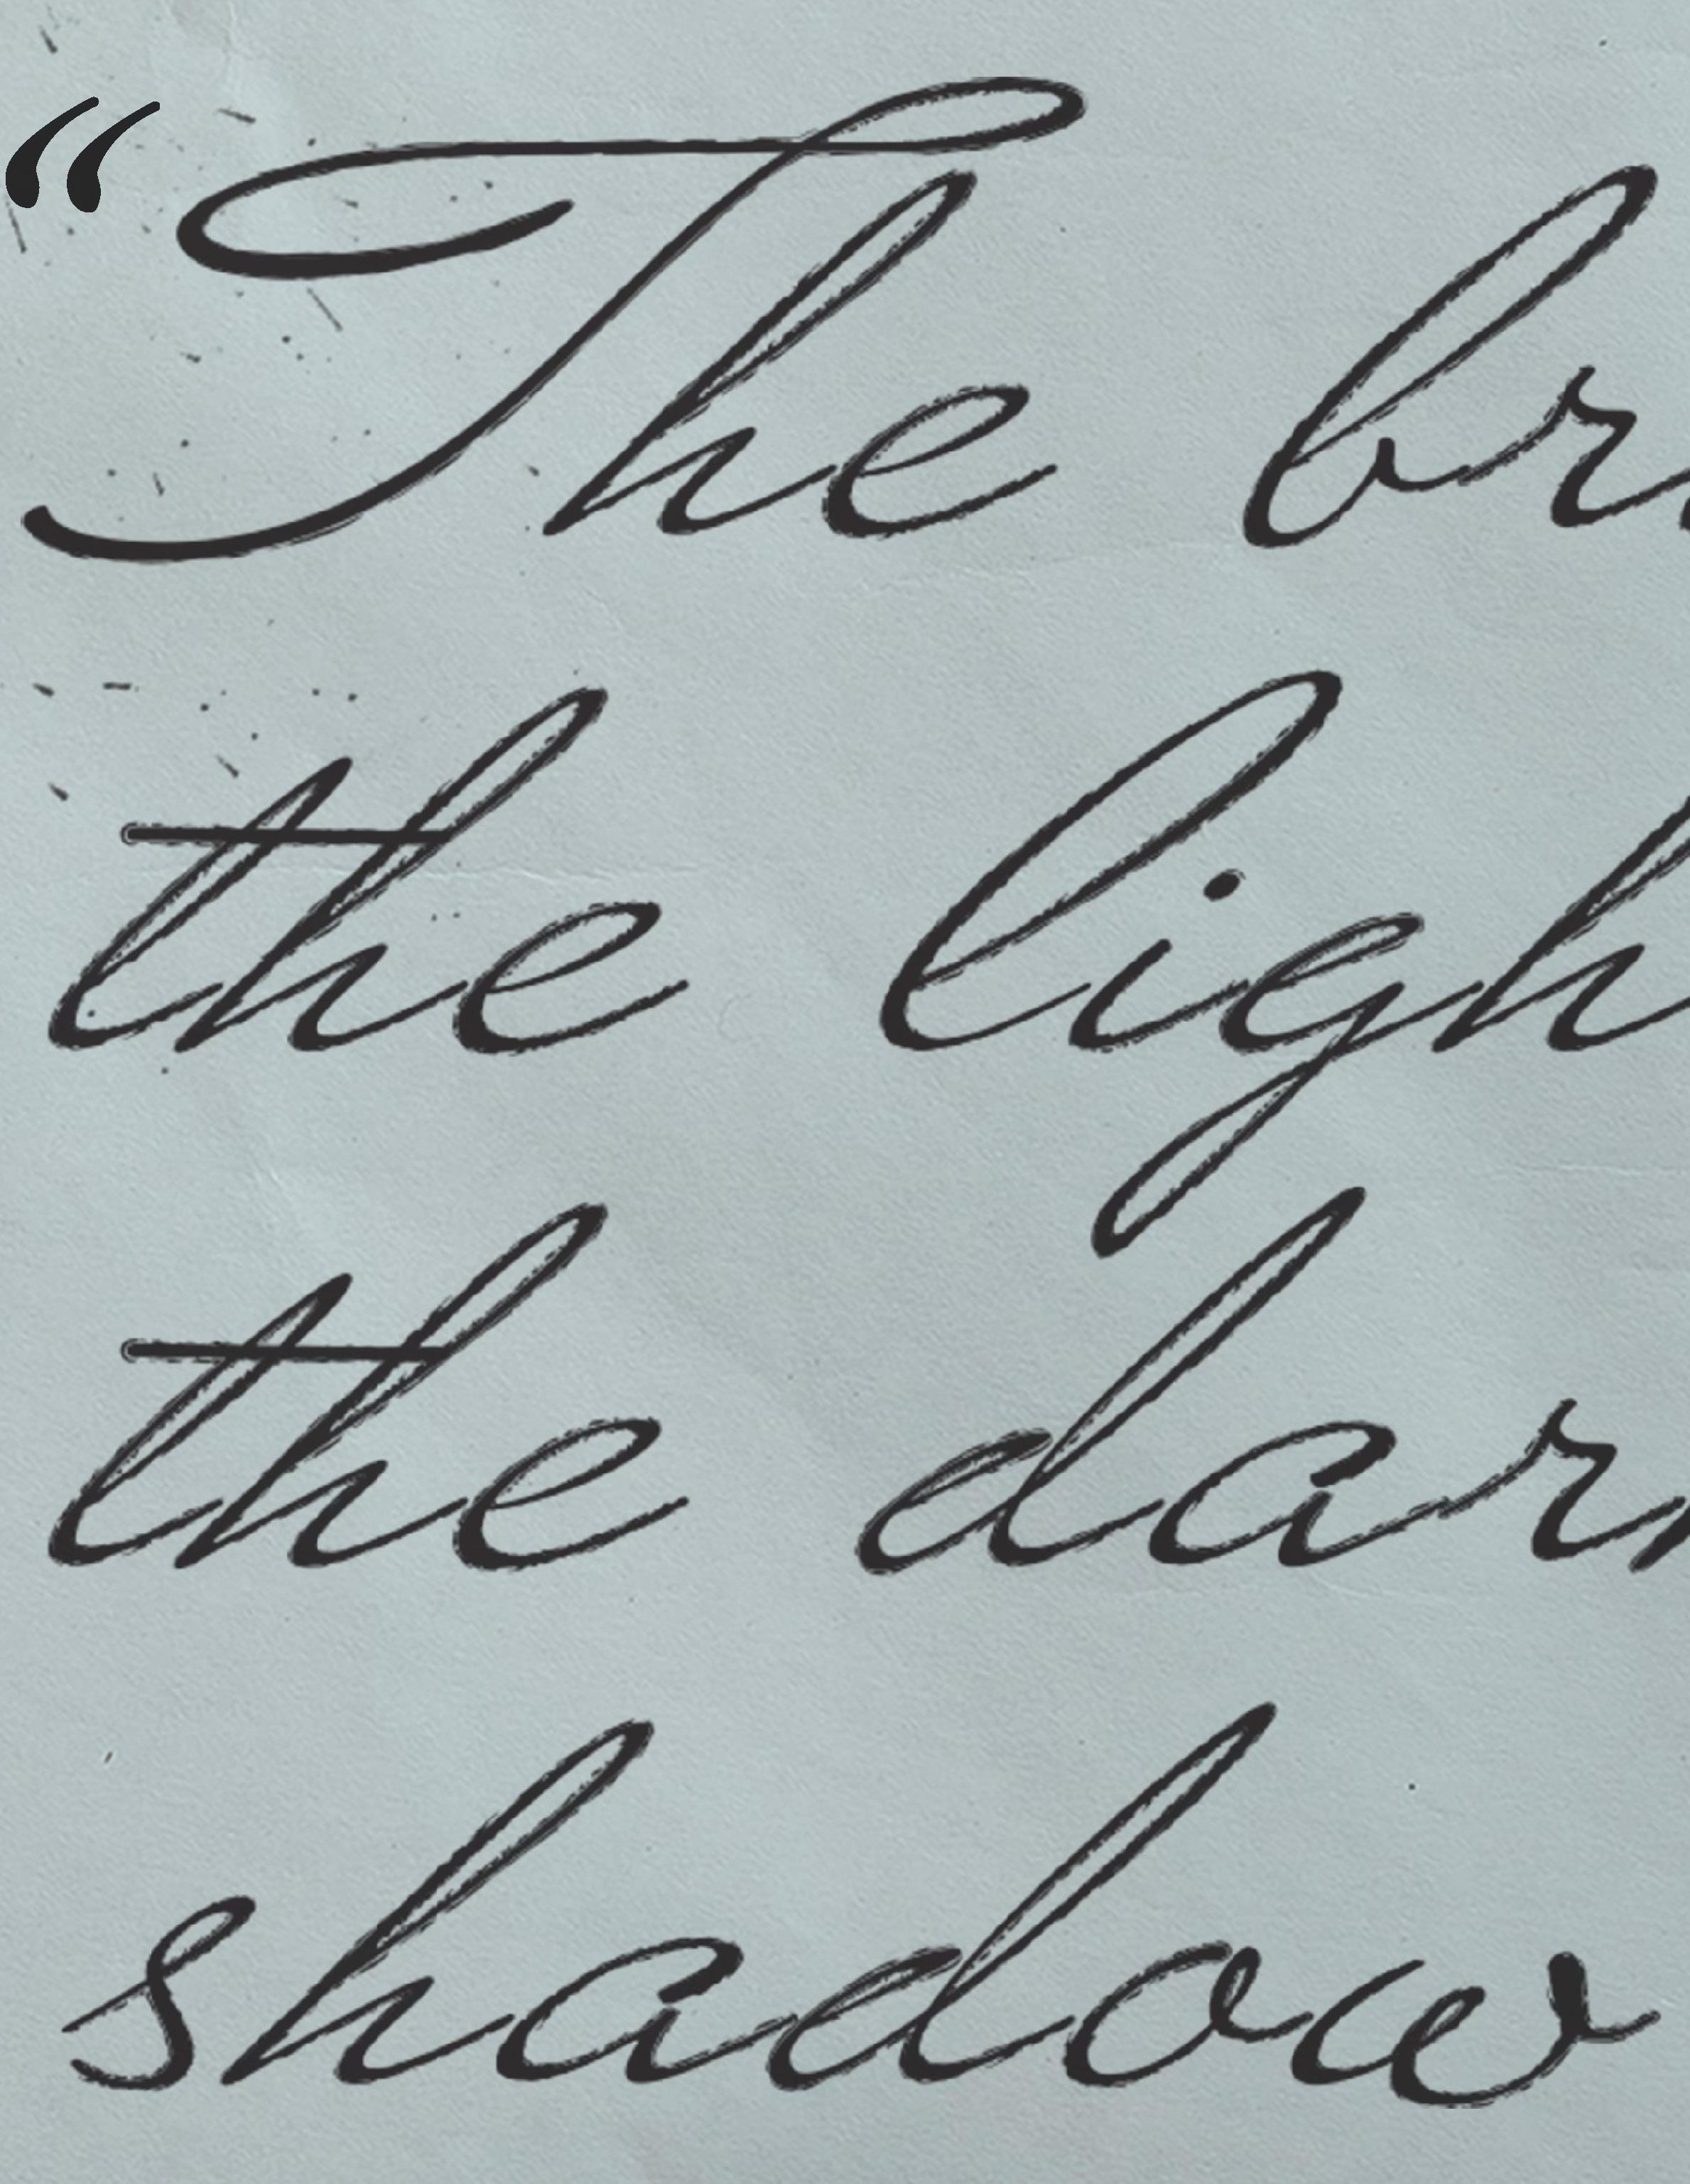 “The br
the ligh
the dar
shadow